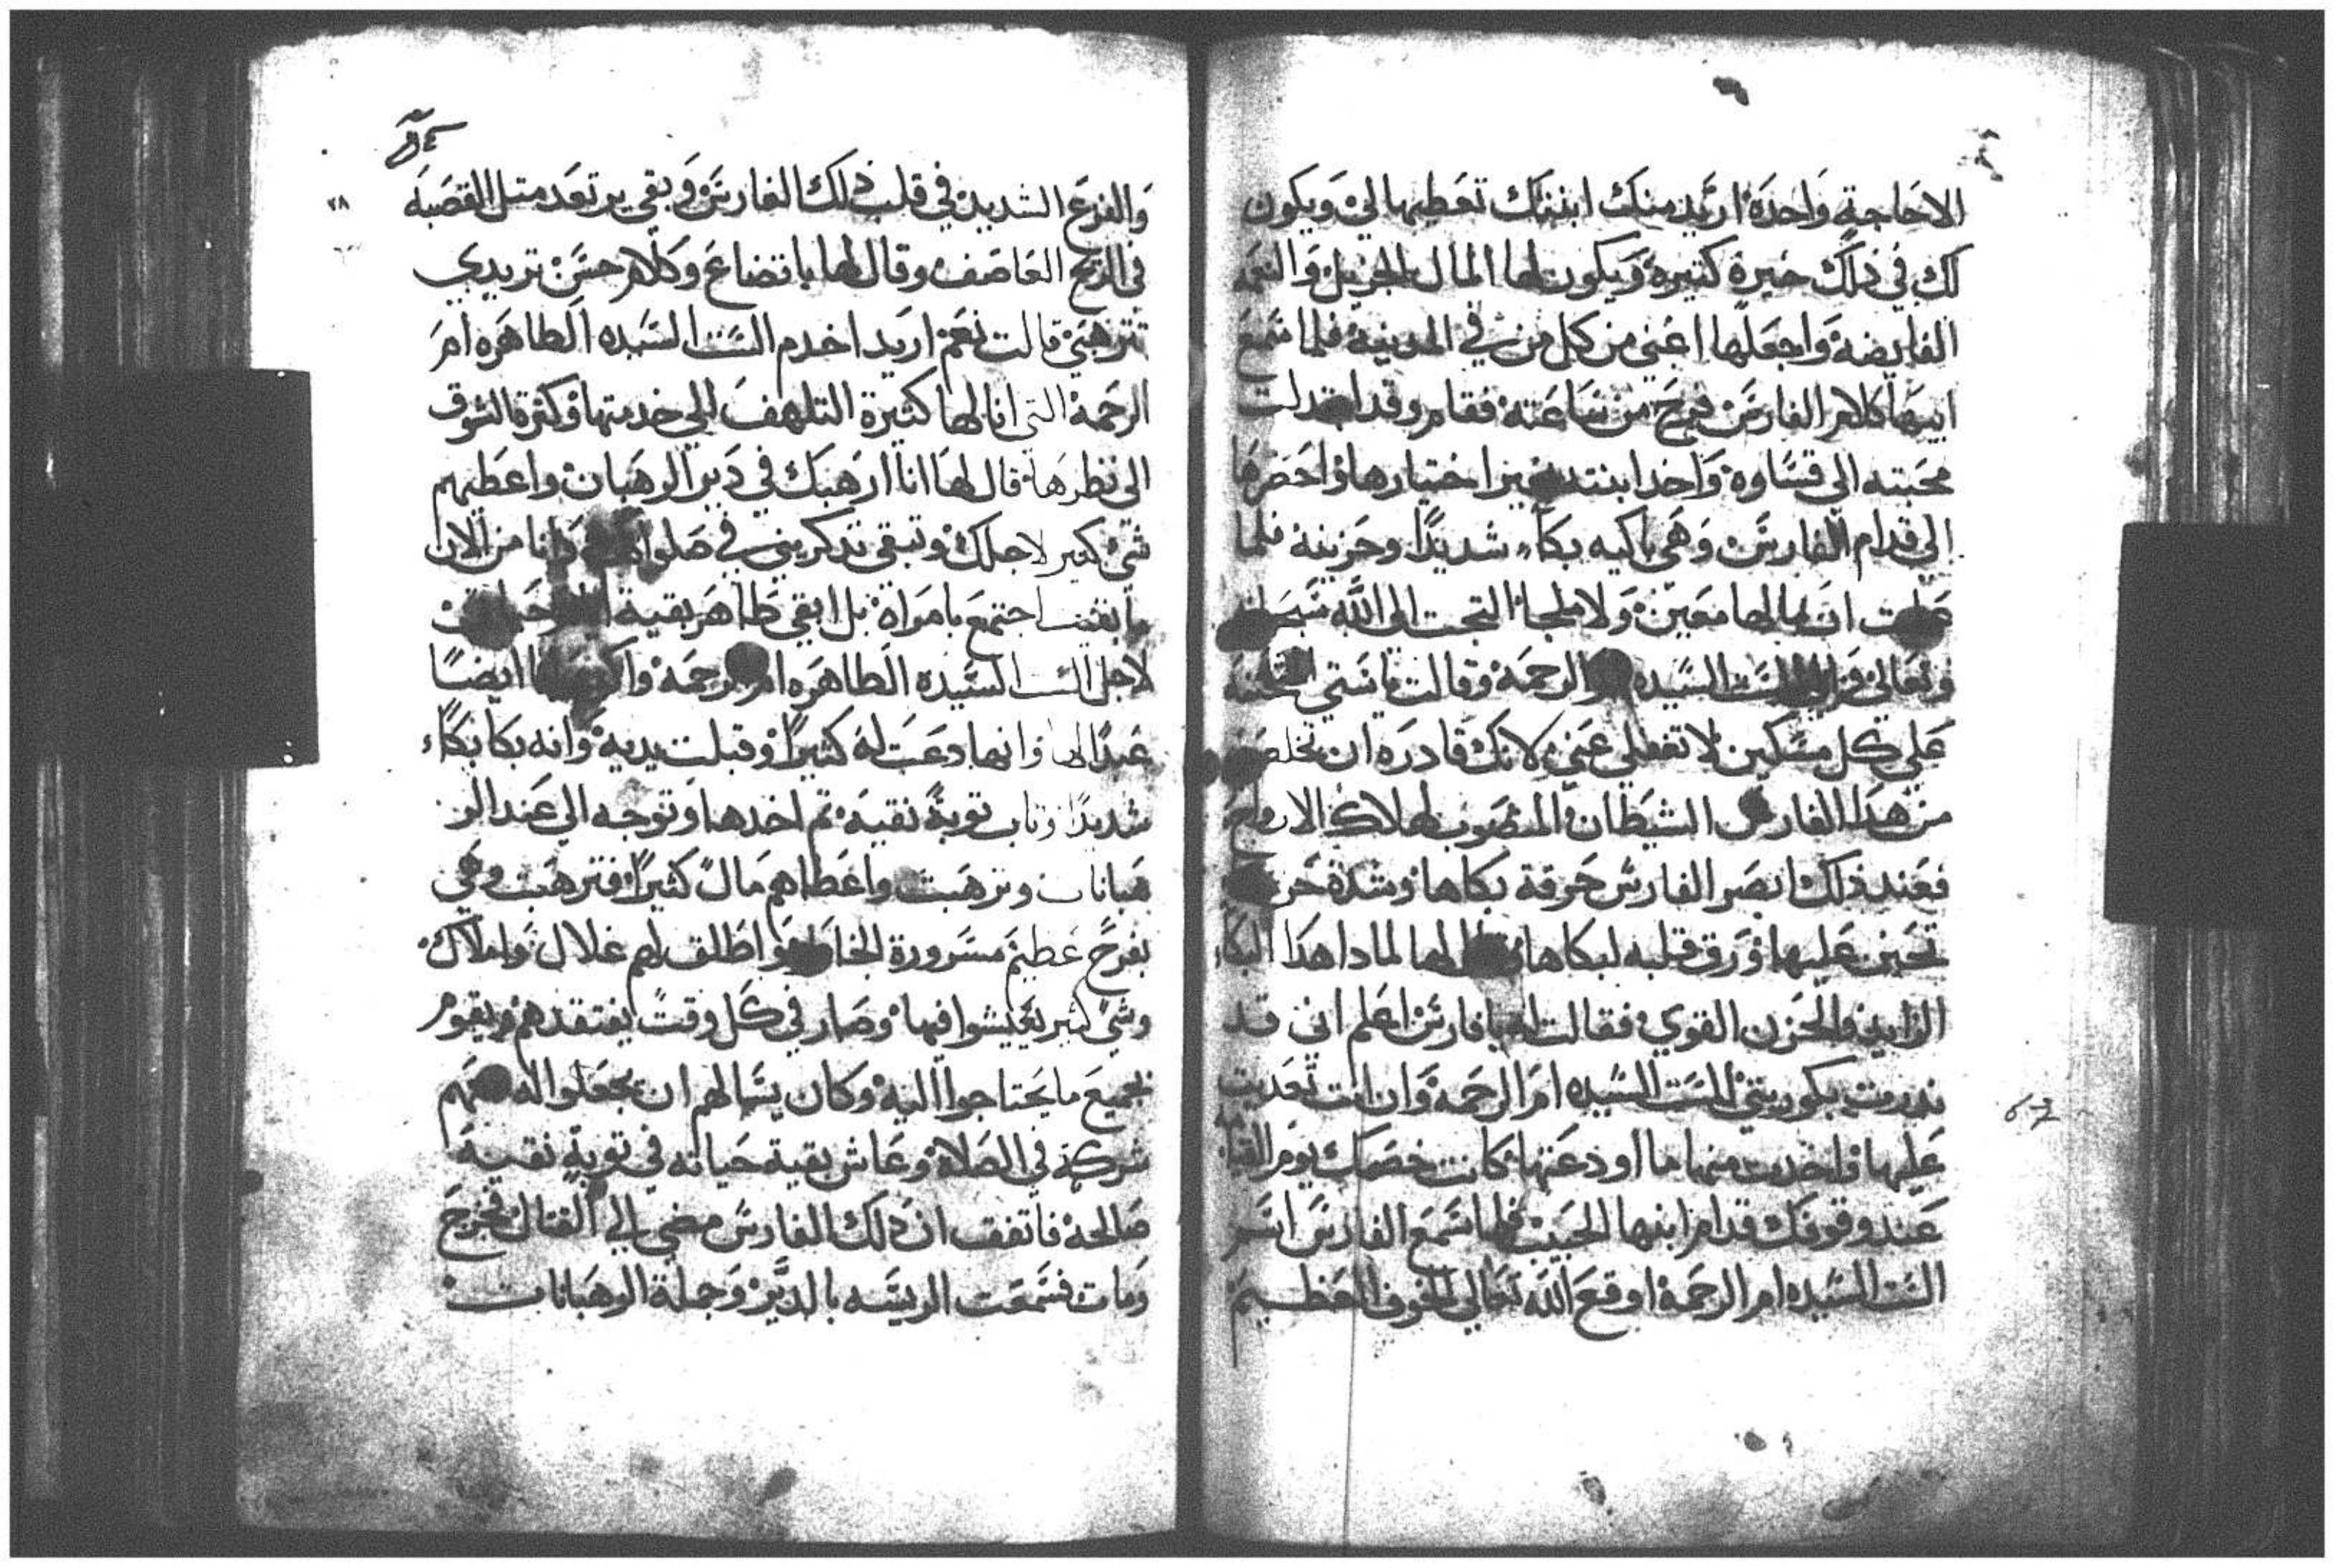 الا حاجة واحدة اريد منك ابنتك تعطيها لي ويكون
لك في ذلك خيرة كتيرة ويكون لها المال الجزيل والنعمه
الفايضة واجعلها اغني من كل من في المدينة فلما سمع
ابيها كلام الفارس فرح من ساعته فقام وقد
محبته الي قساوه واخد ابنته بغير اختيارها واحضرها
الي قدام الفارس وهي باكيه بكاء شديدًا وحزينة فلما
علمت ان مالها معين ولا ملجا التجت الي الله سبحانه
وتعالى الست السيده الرحمة وقالت ياستي
علي كل مسكين لا تغفلي عني لانك قادره ان تخلصي
من هدا الفارس الشيطان المنصوب لهلاك الارواح
فعند ذلك ابصر الفارس حرقة بكاها وشدة
تحنن عليها ورق قلبه لبكاها لها لمادا هدا البكاء
الزايد والحزن القوي فقالت له يافارس اعلم اني قد
ندرت بكوريتي للست السيده ام الرحمة وان انت تعديت
عليها واخدت منها ما اودعتها كانت خصمك يوم القيامه
عند وقوفك قدام ابنها الحبيب فلما سمع الفارس اسم
الست السيده ام الرحمة اوقع الله تعالي الخوف العظيم
٧٨
والفزع الشديد في قلب ذلك الفارس وبقي يرتعد متل القصبه
في الريح العاصف وقال لها باتضاع وكلام حسن تريدي
تترهبي قالت نعم اريد اخدم الست السيده الطاهره ام
الرحمة التي انا لها كثيرة التلهف الي خدمتها وكثرة الشوق
الى نظرها قال لها انا ارهبك في دير الرهبان واعطيهم
شي كتير لاجلك وتبقي تدكريني في وانا من الان
ما بقيت اجتمع بامراة بل ابقي طاهر بقية
لاجل الست السيده الطاهره ام الرحمة ايضًا
عبدًا لها وانها دعت له كثيرًا وقبلت يديه وانه بكا بكاء
شديدًا وتاب توبة نقية تم اخدها وتوجه الي عند الر
هبانات وترهبت واعطاهم مال كثيرًا فترهبت وهي
بفرح عظيم مسرورة واطلق لهم غلال واملاك
وشي كثير يعيشوا فيها وصار في كل وقت يفتقدهم ويقوم
بجميع ما يحتاجوا اليه وكان يسالهم ان يجعلوا له معهم
شركة في الصلاة وعاش بقية حياته في توبة نقية
صالحة فاتفق ان ذلك الفارس مضي الي القتال فجرح
ومات فسمعت الريسه بالدير وجملة الرهبانات